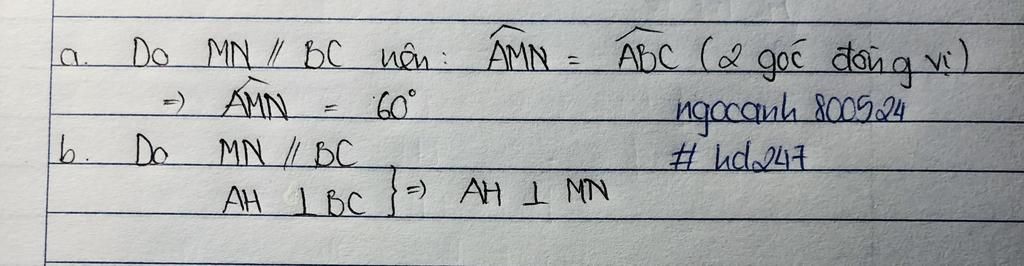 a. Do MN // BC nên: \widehat{AMN} = \widehat{ABC} (2 góc đồng vị)
=> \widehat{AMN} = 60°
ngocanh 800524
b. Do MN // BC
# hd247
AH ⊥ BC } => AH ⊥ MN